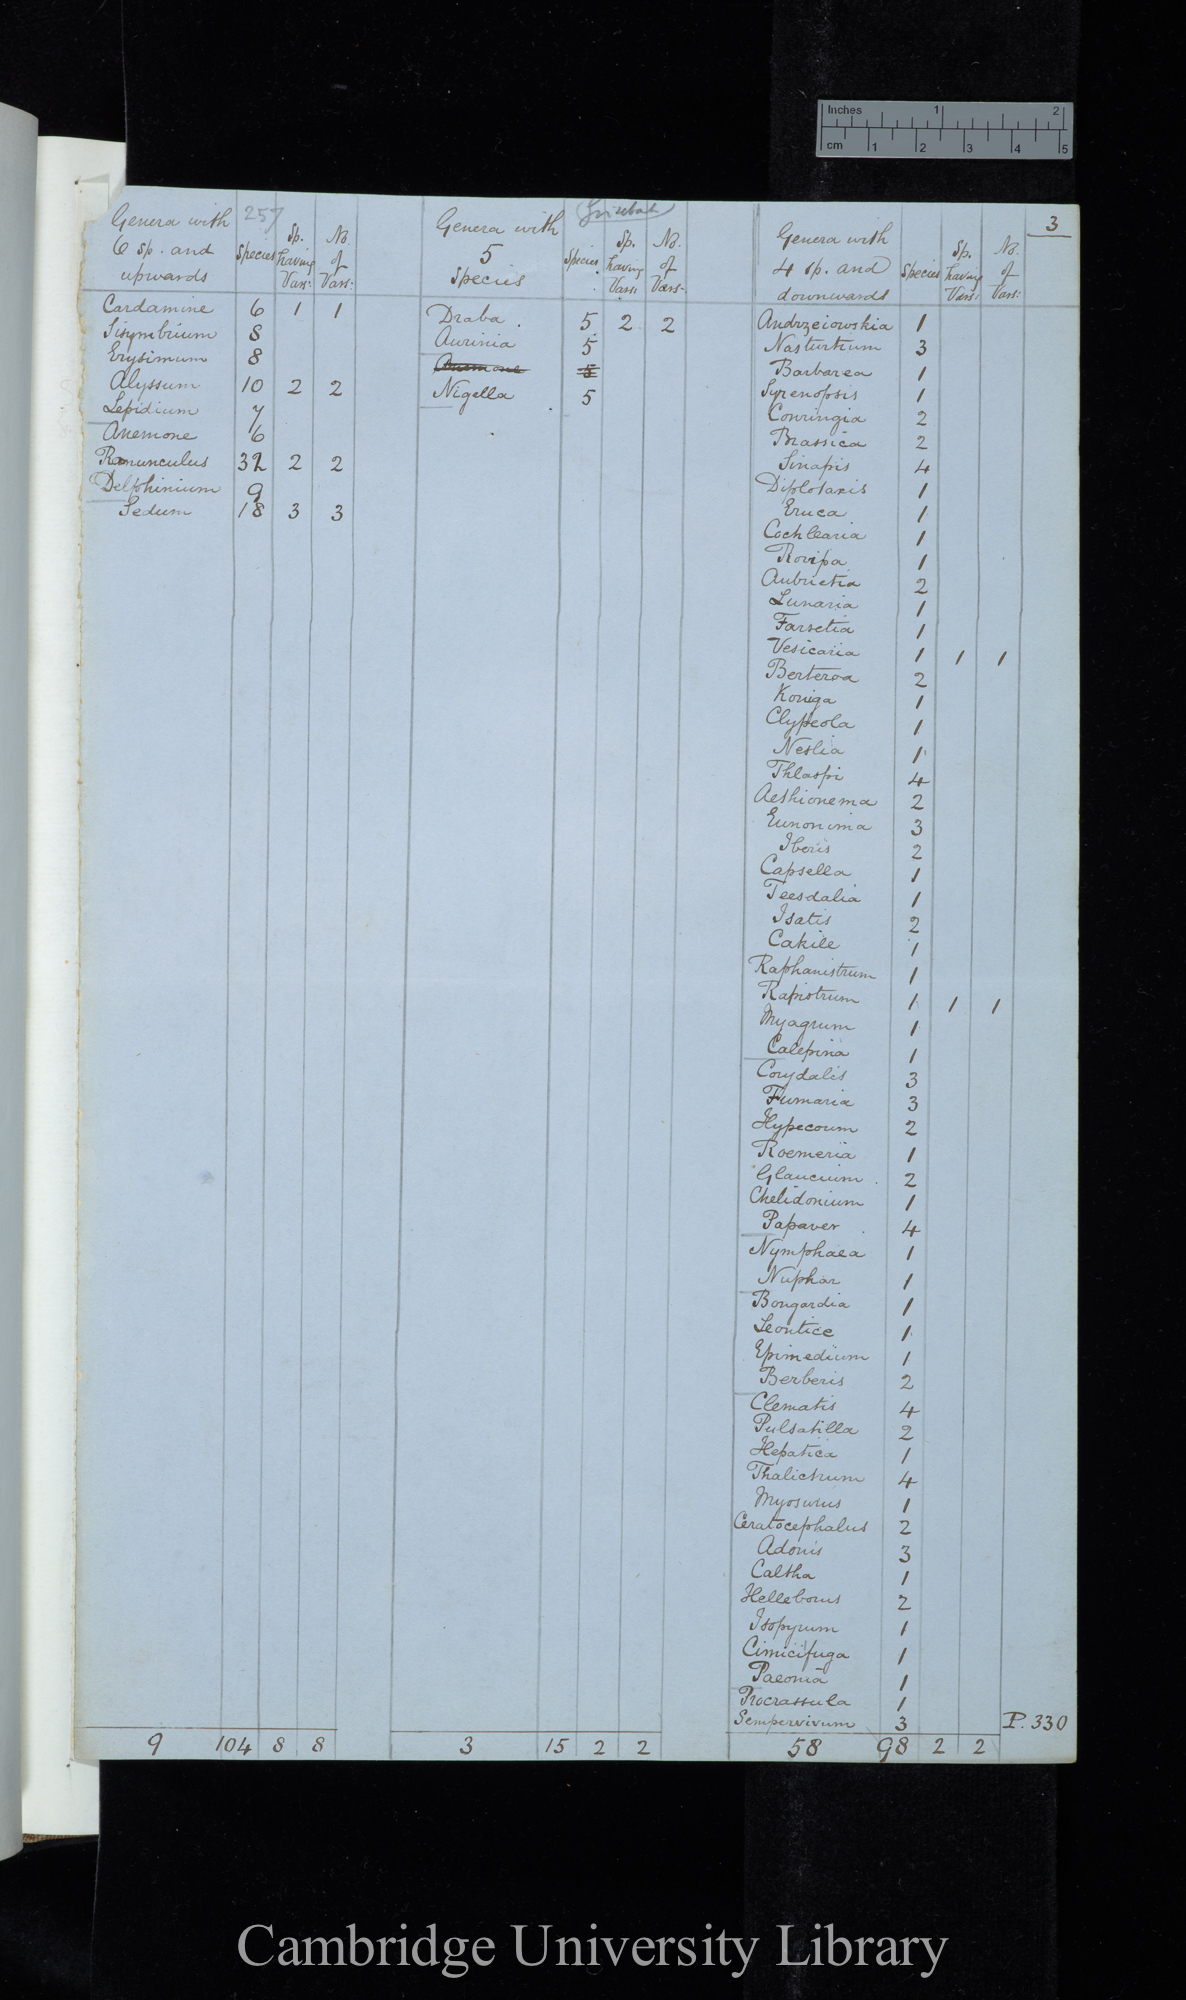 Inches 1 2
cm 1 2 3 4 5
3
257
Genera with
6 sp. and
upwards
Species
Sp.
having
Vars:
No.
of
Vars:
Cardamine 6 1 1
Sisymbrium 8
Erysimum 8
Alyssum 10 2 2
Lepidium 7
Anemone 6
Ranunculus 32 2 2
Delphinium 9
Sedum 18 3 3
9 104 8 8
Genera with
5
Species
Species
Sp.
having
Vars:
No.
of
Vars:
Draba . 5 2 2
Aurinia 5
Anemone 5
Nigella 5
3 15 2 2
Genera with
4 sp. and
downwards
Species
Sp.
having
Vars:
No.
of
Vars:
Andrzeiowskia 1
Nasturtium 3
Barbarea 1
Syrenopsis 1
Conringia 2
Brassica 2
Sinapis 4
Diplotaxis 1
Eruca 1
Cochlearia 1
Roripa 1
Aubrietia 2
Lunaria 1
Farsetia 1
Vesicaria 1 1 1
Berteroa 2
Koniga 1
Clypeola 1
Neslia 1
Thlaspi 4
Aethionema 2
Eunonima 3
Iberis 2
Capsella 1
Teesdalia 1
Isatis 2
Cakile 1
Raphanistrum 1
Rapistrum 1 1 1
Myagrum 1
Calepina 1
Corydalis 3
Fumaria 3
Hypecoum 2
Roemeria 1
Glaucium 2
Chelidonium 1
Papaver 4
Nymphaea 1
Nuphar 1
Bongardia 1
Leontice 1
Epimedium 1
Berberis 2
Clematis 4
Pulsatilla 2
Hepatica 1
Thalictrum 4
Myosurus 1
Ceratocephalus 2
Adonis 3
Caltha 1
Helleborus 2
Isopyrum 1
Cimicifuga 1
Paeonia 1
Procrassula 1
Sempervivum 3
P. 330
58 98 2 2
Cambridge University Library